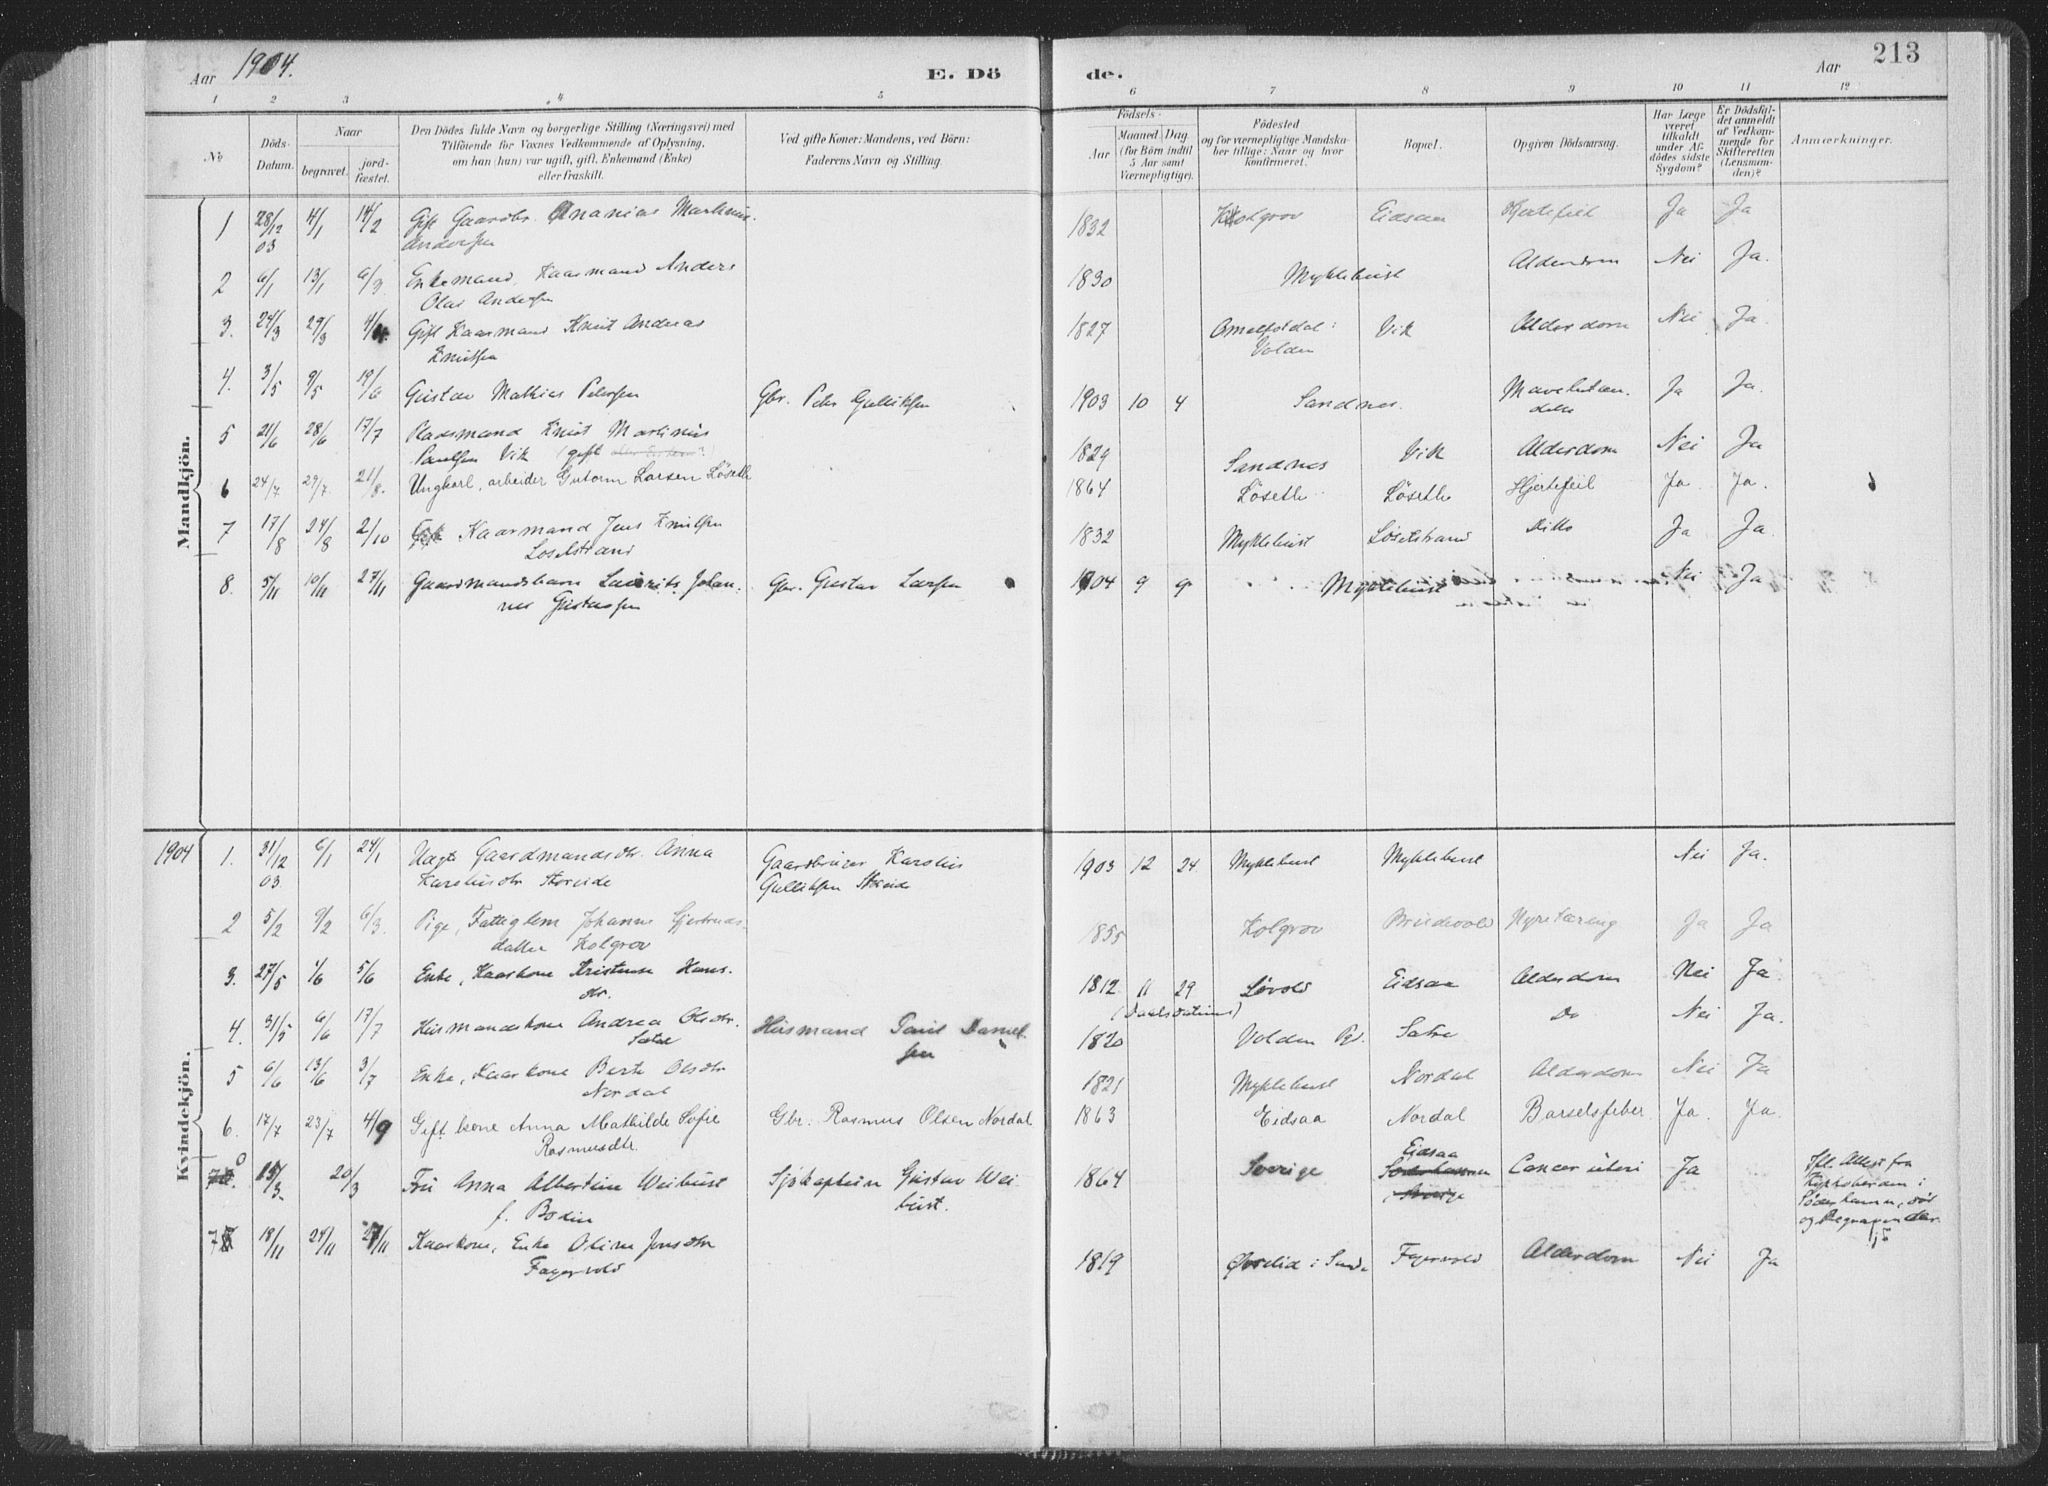 Aar 1904.
E. Dö
de.
Aar
213
1 2 3 4 5 6 7 8 9 10 11 12
№
Döds-Datum.
Naar
begravet.
jord-fæstet.
Den Dödes fulde Navn og borgerlige Stilling (Næringsvei) med
Tilföiende for Voxnes Vedkommende af Oplysning,
om han (hun) var ugift, gift, Enkemand (Enke)
eller fraskilt.
Ved gifte Koner: Mandens, ved Börn:
Faderens Navn og Stilling.
Födsels-
Aar
Maaned. Dag.
(for Börn indtil
5 Aar samt
Værnepligtige).
Födested
og for værnepligtige Mandska-
ber tillige: Naar og hvor
konfirmeret.
Bopæl.
Opgiven Dödsaarsag.
Har Læge
været
tilkaldt
under Af-
dödes sidste
Sygdom?
Er Dödsfal-
det anmeldt
af Vedkom-
mende for
Skifteretten
(Lensman-
den)?
Anmærkninger.
Mandkjön.
1 28/12 03 4/1 14/2 Gift Gaardbr. Ananias Markus. 1832 Kolgrov Eidsaa Hjertefeil Ja Ja
Andersen
2 6/1 13/1 6/3 Enkemand, Kaarmand Anders 1830 Myklebust Alderdom Nei Ja.
Olai Andersen
3. 24/3 29/3 4/4 Gift Kaarmand Knut Andreas 1827 Omelfotdal i Vik Alderdom Nei Ja.
Knutsen Volden
4. 3/5 9/5 19/6 Gustav Mathias Petersen Gbr. Peter Gulliksen 1903 10 4 Sandnes. Ja Ja.
5 21/6 28/6 17/7 Pladsmand Knut Martinus 1829 Sandnes Vik Alderdom Nei Ja
Paulsen Vik (gift
6 24/7 29/7 21/8. Ungkarl, arbeider Gutorm Larsen Löseth 1864 Löseth Löseth Hjertefeil Ja. Ja.
7 17/8 24/8 2/10 Kaarmand Jens Knutsen 1832 Myklebust Lösetstrand Ditto Ja Ja.
Losetstrand
8. 5/11 10/11 27/11 Gaardmandsbarn Laurits Johan- Gbr. Gustav Larsen 1904 9 9 Myklebust Nei Ja
nes Gustavsen
Kvindekjön.
1904 1. 31/12 03 6/1 24/1 Gaardmandsdtr. Anna Gaardbruger Karolus 1903 12 24 Myklebust Myklebust Nei Ja.
Karolusdtr Storeide Gulliksen Storeide
2 5/2 9/2 6/3. Pige, Fattiglem Johanne Gjertrud- 1855 Kolgrov Nyretæring Ja Ja
datter Kolgrov
3. 27/5 1/6 5/6 Enke, Kaarkone Kristense Hans- 1812 11 29 Lövold Eidsaa Alderdom Nei Ja.
dtr. (Daabsdatum)
4. 31/5 6/6 17/7 Husmandskone Andrea Olsdtr. Husmand Paul Daniel- 1820 Volden Satre Do Nei Ja.
Satre sen
5 6/6 13/6 3/7 Enke, Kaarkone Berte Olsdtr 1821 Myklebust Nordal Alderdom Nei Ja
Nordal
6. 17/7 23/7 4/9 Gift kone Anna Mathilde Sofie Gbr. Rasmus Olsen Nordal 1863 Eidsaa Nordal Barselsfeber Ja. Ja.
Rasmusdtr
15/3. 20/3 Fru Anna Albertine Weibust Sjökaptein Gustav Wei- 1864 Sverige Eidsaa Cancer uteri Ja Ifl. Attest fra
f. Bodin bust. Söderhamn Kirkeherden i
Sverige Söderhamn, död
og begraven der.
7 18/11 24/11 27/11 Kaarkone, Enke Oline Jonsdtr 1819 Øvrelid i Sande Fagervold Alderdom Nei Ja
Fagervold